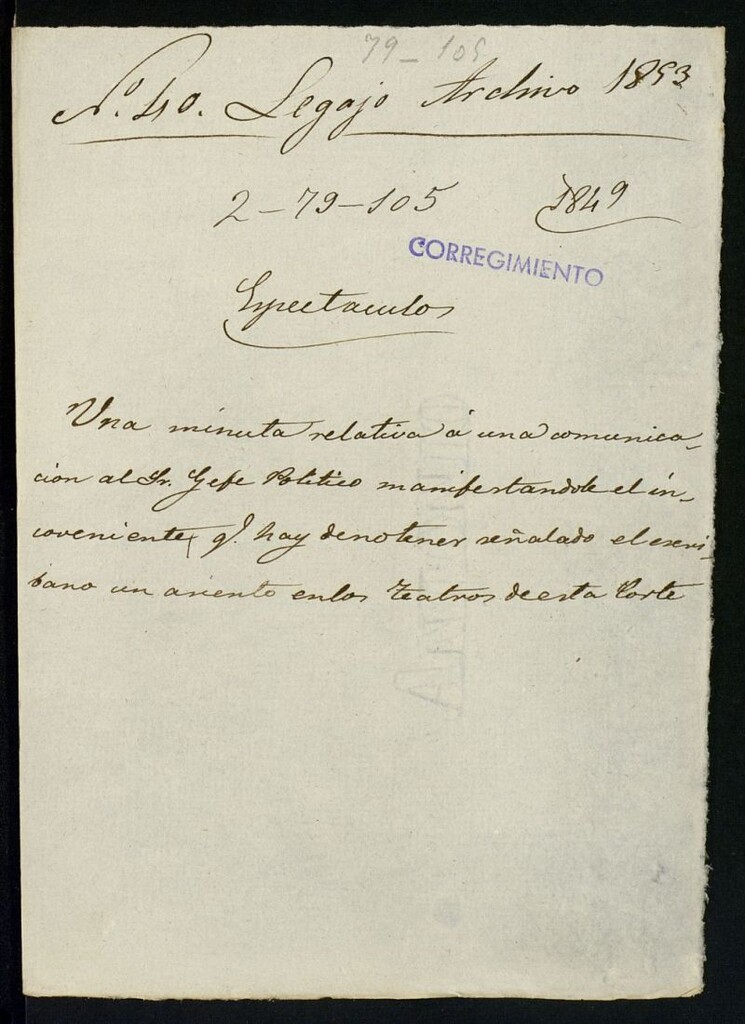 79-105
Nº. 40. Legajo Archivo 1853
2-79-105 1849
CORREGIMIENTO
Espectaculos
Una minuta relativa á una comunica-
cion al Sr. Gefe Politico manifestandole el in-
coveniente, q.e hay de no tener señalado el escri-
bano un asiento en los teatros de esta Corte